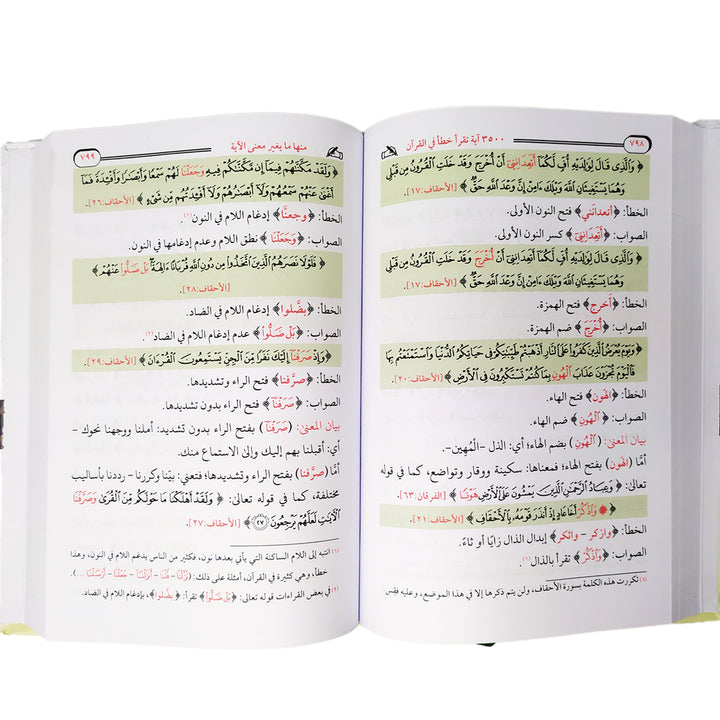 ٧٩٨
٣٥٠٠ آية تقرأ خطأ في القرآن
﴿ وَالَّذِي قَالَ لِوَالِدَيْهِ أُفٍّ لَّكُمَا أَتَعِدَانِنِي أَنْ أُخْرَجَ وَقَدْ خَلَتِ الْقُرُونُ مِن قَبْلِي
وَهُمَا يَسْتَغِيثَانِ اللَّهَ وَيْلَكَ ءَامِنْ إِنَّ وَعْدَ اللَّهِ حَقٌّ ﴾ [الأحقاف:١٧].
الخطأ: ﴿أتعدانَني﴾ فتح النون الأولى.
الصواب: ﴿أَتَعِدَانِنِي﴾ كسر النون الأولى.
﴿ وَالَّذِي قَالَ لِوَالِدَيْهِ أُفٍّ لَّكُمَا أَتَعِدَانِنِي أَنْ أُخْرَجَ وَقَدْ خَلَتِ الْقُرُونُ مِن قَبْلِي
وَهُمَا يَسْتَغِيثَانِ اللَّهَ وَيْلَكَ ءَامِنْ إِنَّ وَعْدَ اللَّهِ حَقٌّ ﴾ [الأحقاف:١٧].
الخطأ: ﴿أَخرج﴾ فتح الهمزة.
الصواب: ﴿أُخْرَجَ﴾ ضم الهمزة.
﴿ وَيَوْمَ يُعْرَضُ الَّذِينَ كَفَرُوا عَلَى النَّارِ أَذْهَبْتُمْ طَيِّبَاتِكُمْ فِي حَيَاتِكُمُ الدُّنْيَا وَاسْتَمْتَعْتُم بِهَا
فَالْيَوْمَ تُجْزَوْنَ عَذَابَ الْهُونِ بِمَا كُنتُمْ تَسْتَكْبِرُونَ فِي الْأَرْضِ ﴾ [الأحقاف:٢٠].
الخطأ: ﴿الهَون﴾ فتح الهاء.
الصواب: ﴿الْهُونِ﴾ ضم الهاء.
بيان المعنى: ﴿الْهُونِ﴾ بضم الهاء؛ أي: الذل -المُهين-.
أمَّا (الهَون) بفتح الهاء؛ فمعناها: سكينة ووقار وتواضع، كما في قوله
تعالى: ﴿ وَعِبَادُ الرَّحْمَٰنِ الَّذِينَ يَمْشُونَ عَلَى الْأَرْضِ هَوْنًا ﴾ [الفرقان:٦٣].
﴿ وَاذْكُرْ أَخَا عَادٍ إِذْ أَنذَرَ قَوْمَهُ بِالْأَحْقَافِ ﴾ [الأحقاف:٢١].
الخطأ: ﴿وازكر - واثكر﴾ إبدال الذال زايًا أو ثاءً.
الصواب: ﴿وَاذْكُرْ﴾ تقرأ بالذال.(١)
(١) تكررت هذه الكلمة بسورة الأحقاف، ولن يتم ذكرها إلا في هذا الموضع، وعليه فقِس.
منها ما يغير معنى الآية
٧٩٩
﴿ وَلَقَدْ مَكَّنَّاهُمْ فِيمَا إِن مَّكَّنَّاكُمْ فِيهِ وَجَعَلْنَا لَهُمْ سَمْعًا وَأَبْصَارًا وَأَفْئِدَةً فَمَا
أَغْنَىٰ عَنْهُمْ سَمْعُهُمْ وَلَا أَبْصَارُهُمْ وَلَا أَفْئِدَتُهُم مِّن شَيْءٍ ﴾ [الأحقاف:٢٦].
الخطأ: ﴿وجعنَّا﴾ إدغام اللام في النون.(١)
الصواب: ﴿وَجَعَلْنَا﴾ نطق اللام وعدم إدغامها في النون.
﴿ فَلَوْلَا نَصَرَهُمُ الَّذِينَ اتَّخَذُوا مِن دُونِ اللَّهِ قُرْبَانًا ءَالِهَةً بَلْ ضَلُّوا عَنْهُمْ ﴾
[الأحقاف:٢٨].
الخطأ: ﴿بضَّلوا﴾ إدغام اللام في الضاد.
الصواب: ﴿بَلْ ضَلُّوا﴾ عدم إدغام اللام في الضاد.(٢)
﴿ وَإِذْ صَرَفْنَا إِلَيْكَ نَفَرًا مِّنَ الْجِنِّ يَسْتَمِعُونَ الْقُرْءَانَ ﴾ [الأحقاف:٢٩].
الخطأ: ﴿صرَّفنا﴾ فتح الراء وتشديدها.
الصواب: ﴿صَرَفْنَا﴾ فتح الراء بدون تشديدها.
بيان المعنى: ﴿صَرَفْنَا﴾ بفتح الراء بدون تشديد: أملنا ووجهنا نحوك -
أي: أقبلنا بهم إليك وإلى الاستماع منك.
أمَّا (صرَّفنا) بفتح الراء وتشديدها؛ فتعني: بيّنا وكررنا - رددنا بأساليب
مختلفة، كما في قوله تعالى: ﴿ وَلَقَدْ أَهْلَكْنَا مَا حَوْلَكُم مِّنَ الْقُرَىٰ وَصَرَّفْنَا
الْآيَاتِ لَعَلَّهُمْ يَرْجِعُونَ ٢٧ ﴾ [الأحقاف:٢٧].
(١) انتبه إلى اللام الساكنة التي يأتي بعدها نون، فكثير من الناس يدغم اللام في النون، وهذا
خطأ، وهي كثيرة في القرآن، أمثلة على ذلك: (نَزَّلْنَا - قُلْنَا - أَنزَلْنَا - جَعَلْنَا - أَرْسَلْنَا ...).
(٢) في بعض القراءات قوله تعالى: ﴿بَلْ ضَلُّوا﴾ تقرأ: ﴿بضَّلوا﴾، بإدغام اللام في الضاد.